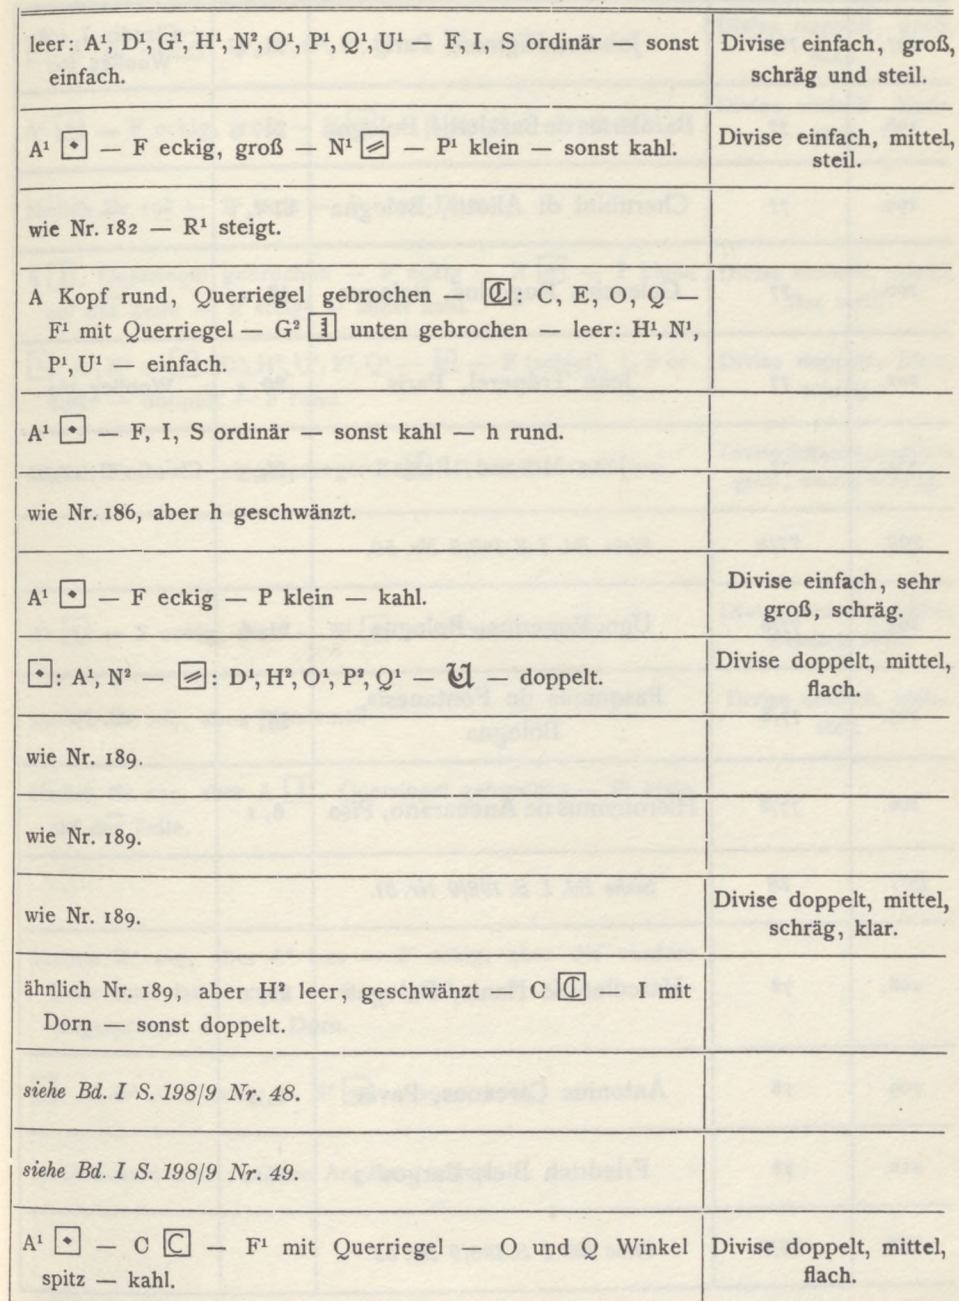 leer: A¹, D¹, G¹, H¹, N², O¹, P¹, Q¹, U¹ — F, I, S ordinär — sonst
einfach.
Divise einfach, groß,
schräg und steil.
A¹ — F eckig, groß — N¹ — P¹ klein — sonst kahl.
Divise einfach, mittel,
steil.
wie Nr. 182 — R¹ steigt.
A Kopf rund, Querriegel gebrochen — : C, E, O, Q —
F¹ mit Querriegel — G² unten gebrochen — leer: H¹, N¹,
P¹, U¹ — einfach.
A¹ — F, I, S ordinär — sonst kahl — h rund.
wie Nr. 186, aber h geschwänzt.
A¹ — F eckig — P klein — kahl.
Divise einfach, sehr
groß, schräg.
: A¹, N² — : D¹, H², O¹, P², Q¹ — 𝔘 — doppelt.
Divise doppelt, mittel,
flach.
wie Nr. 189.
wie Nr. 189.
wie Nr. 189.
Divise doppelt, mittel,
schräg, klar.
ähnlich Nr. 189, aber H² leer, geschwänzt — C — I mit
Dorn — sonst doppelt.
siehe Bd. I S. 198/9 Nr. 48.
siehe Bd. I S. 198/9 Nr. 49.
A¹ — C — F¹ mit Querriegel — O und Q Winkel
spitz — kahl.
Divise doppelt, mittel,
flach.